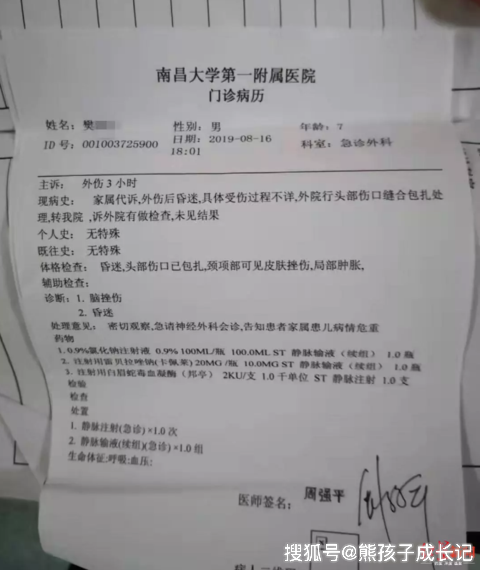 南昌大学第一附属医院
门诊病历
姓名: 樊 性别: 男 年龄: 7
ID 号: 001003725900 日期: 2019-08-16 科室: 急诊外科
18:01
主诉: 外伤 3 小时
现病史: 家属代诉,外伤后昏迷,具体受伤过程不详,外院行头部伤口缝合包扎处
理,转我院 ,诉外院有做检查,未见结果
个人史: 无特殊
既往史: 无特殊
体格检查: 昏迷,头部伤口已包扎,颈项部可见皮肤挫伤,局部肿胀,
辅助检查:
诊断: 1. 脑挫伤
2. 昏迷
处理意见: 密切观察,急请神经外科会诊,告知患者家属患儿病情危重
药物
1. 0.9%氯化钠注射液 0.9% 100ML/瓶 100.0ML ST 静脉输液（续组） 1.0 瓶
2. 注射用雷贝拉唑钠(卡佩莱) 20MG /瓶 10.0MG ST 静脉输液（续组） 1.0 瓶
3. 注射用白眉蛇毒血凝酶（邦亭） 2KU/支 1.0 千单位 ST 静脉注射 1.0 支
检验
检查
处置
1. 静脉注射(急诊)×1.0 次
2. 静脉输液(续组)(急诊)×1.0 组
生命体征:呼吸:血压:
医师签名: 周强平
搜狐号@熊孩子成长记